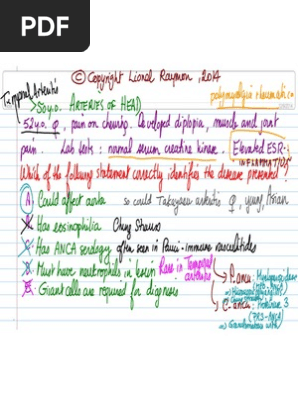 PDF
© Copyright Lionel Raymon, 2014
Temporal Arteritis
polymyalgia rheumatica
> 50 y.o. ARTERIES OF HEAD
52 y.o. ♀, pain on chewing. Developed diplopia, muscle and joint
pain. Lab tests: normal serum creatine kinase. Elevated ESR.
INFLAMMATION
Which of the following statement correctly identifies the disease presented?
A. Could affect aorta so could Takayasu arteritis ♀, young, Asian
B. Has eosinophilia Churg Strauss
C. Has ANCA serology often seen in Pauci-immune vasculitides
D. Must have neutrophils in lesion Rare in Temporal arteritis
E. Giant cells are required for diagnosis
P. ANCA: Myeloperoxidase
(MPO-ANCA)
C. ANCA: Proteinase 3
(PR3-ANCA)